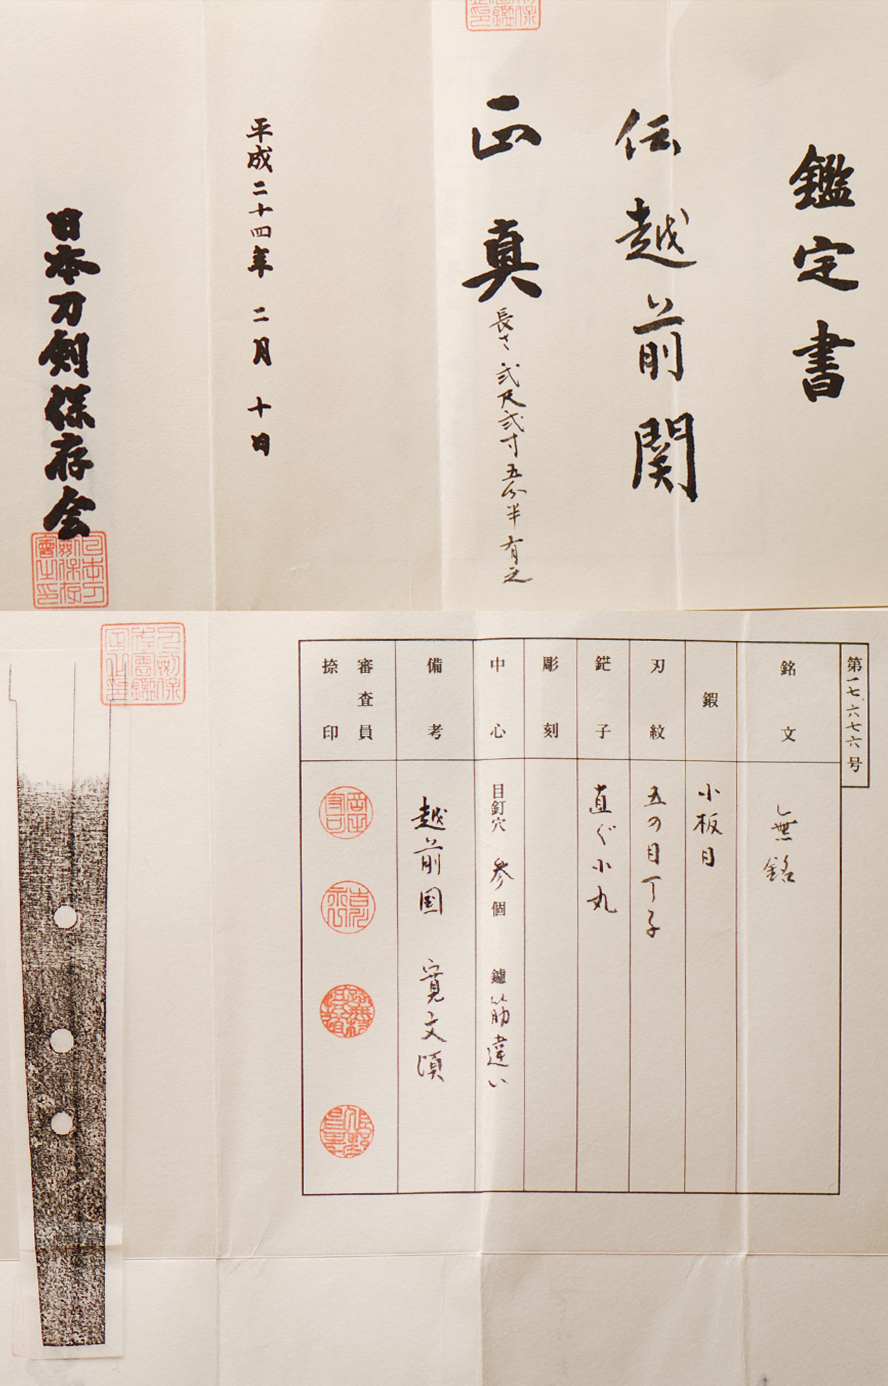 鑑定書
伝越前関
正真
長さ 弐尺弐寸五分半有之
平成二十四年 二月 十日
日本刀剣保存会
第一七、六七六号
銘文
無銘
鍜
小板目
刃紋
五の目丁子
鋩子
直ぐ小丸
彫刻
中心
目釘穴 参個 鑢筋違い
備考
越前国 寛文頃
審査員
捺印